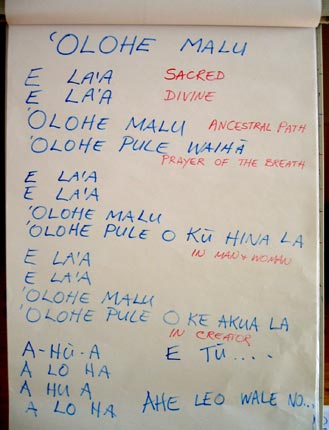 'OLOHE MALU
E LA'A SACRED
E LA'A DIVINE
'OLOHE MALU ANCESTRAL PATH
'OLOHE PULE WAIHĀ
PRAYER OF THE BREATH
E LA'A
E LA'A
'OLOHE MALU
'OLOHE PULE O KŪ HINA LA
E LA'A IN MAN & WOMAN
E LA'A
'OLOHE MALU
'OLOHE PULE O KE AKUA LA
IN CREATOR
A-HŪ-A E TŪ....
A LO HA
A HU A
A LO HA AHE LEO WALE NO...